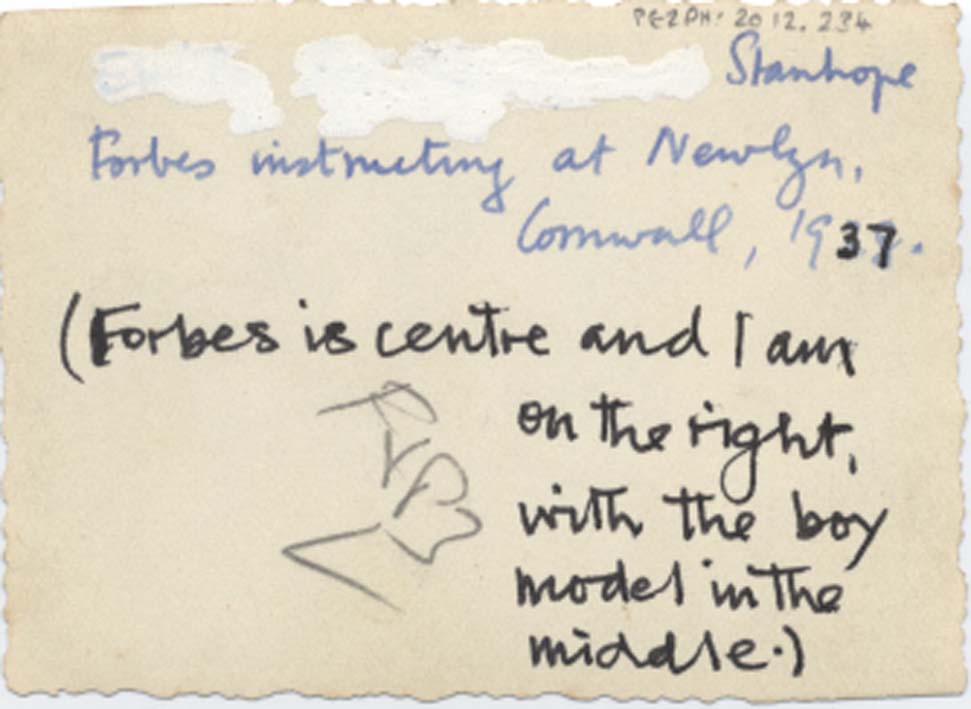 PEZPH: 2012. 234
Stanhope
Forbes instructing at Newlyn,
Cornwall, 1937.
(Forbes is centre and I am
on the right,
with the boy
model in the
middle.)